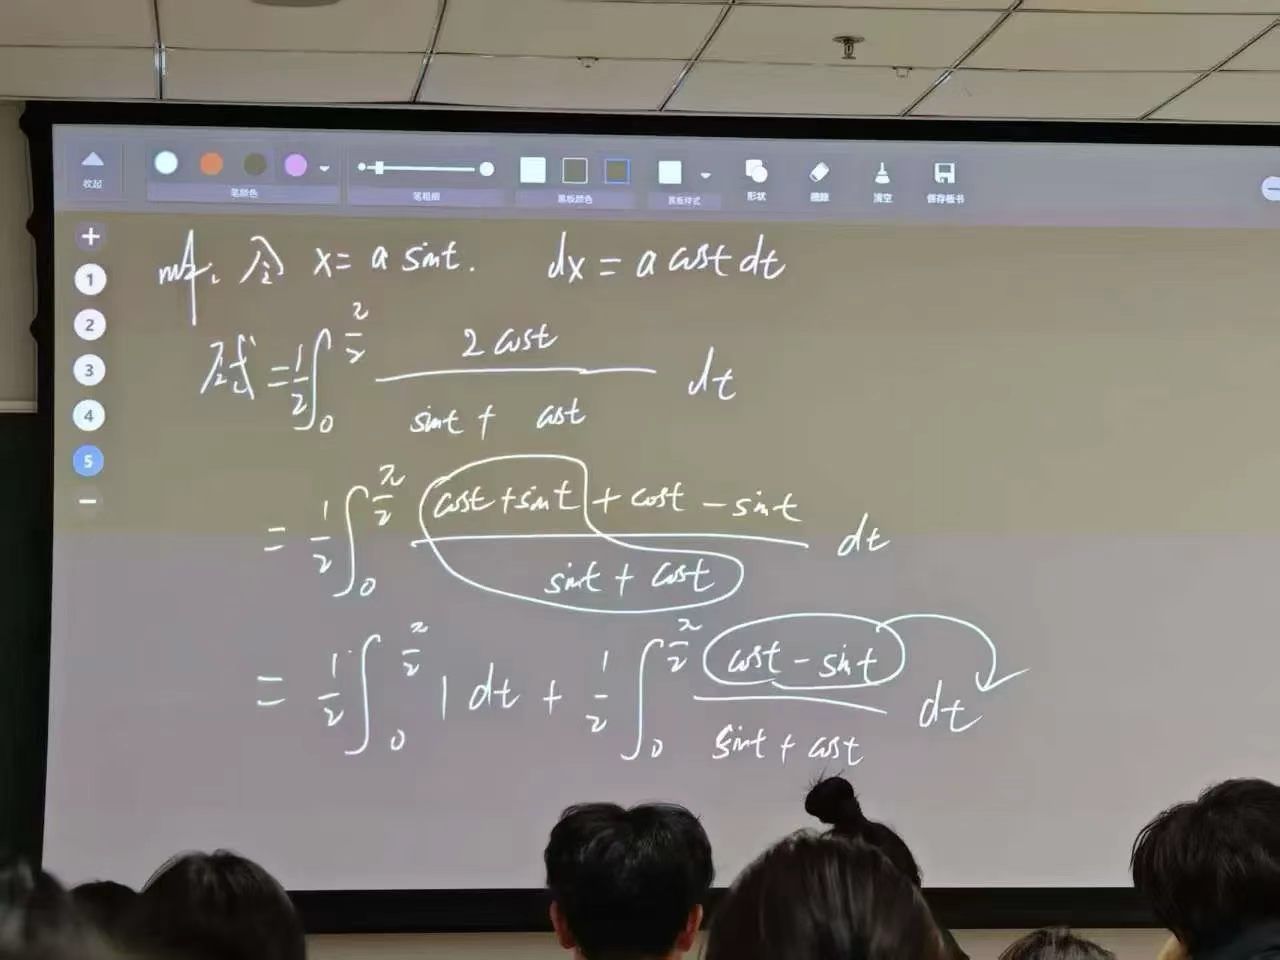 收起
笔颜色
笔粗细
黑板颜色
黑板样式
形状
擦除
清空
保存板书
+
1
2
3
4
5
−
解: 令 x = a sint. dx = a cost dt
原式 = 1/2 ∫_0^{π/2} (2 cost)/(sint + cost) dt
= 1/2 ∫_0^{π/2} (cost + sint + cost − sint)/(sint + cost) dt
= 1/2 ∫_0^{π/2} 1 dt + 1/2 ∫_0^{π/2} (cost − sint)/(sint + cost) dt